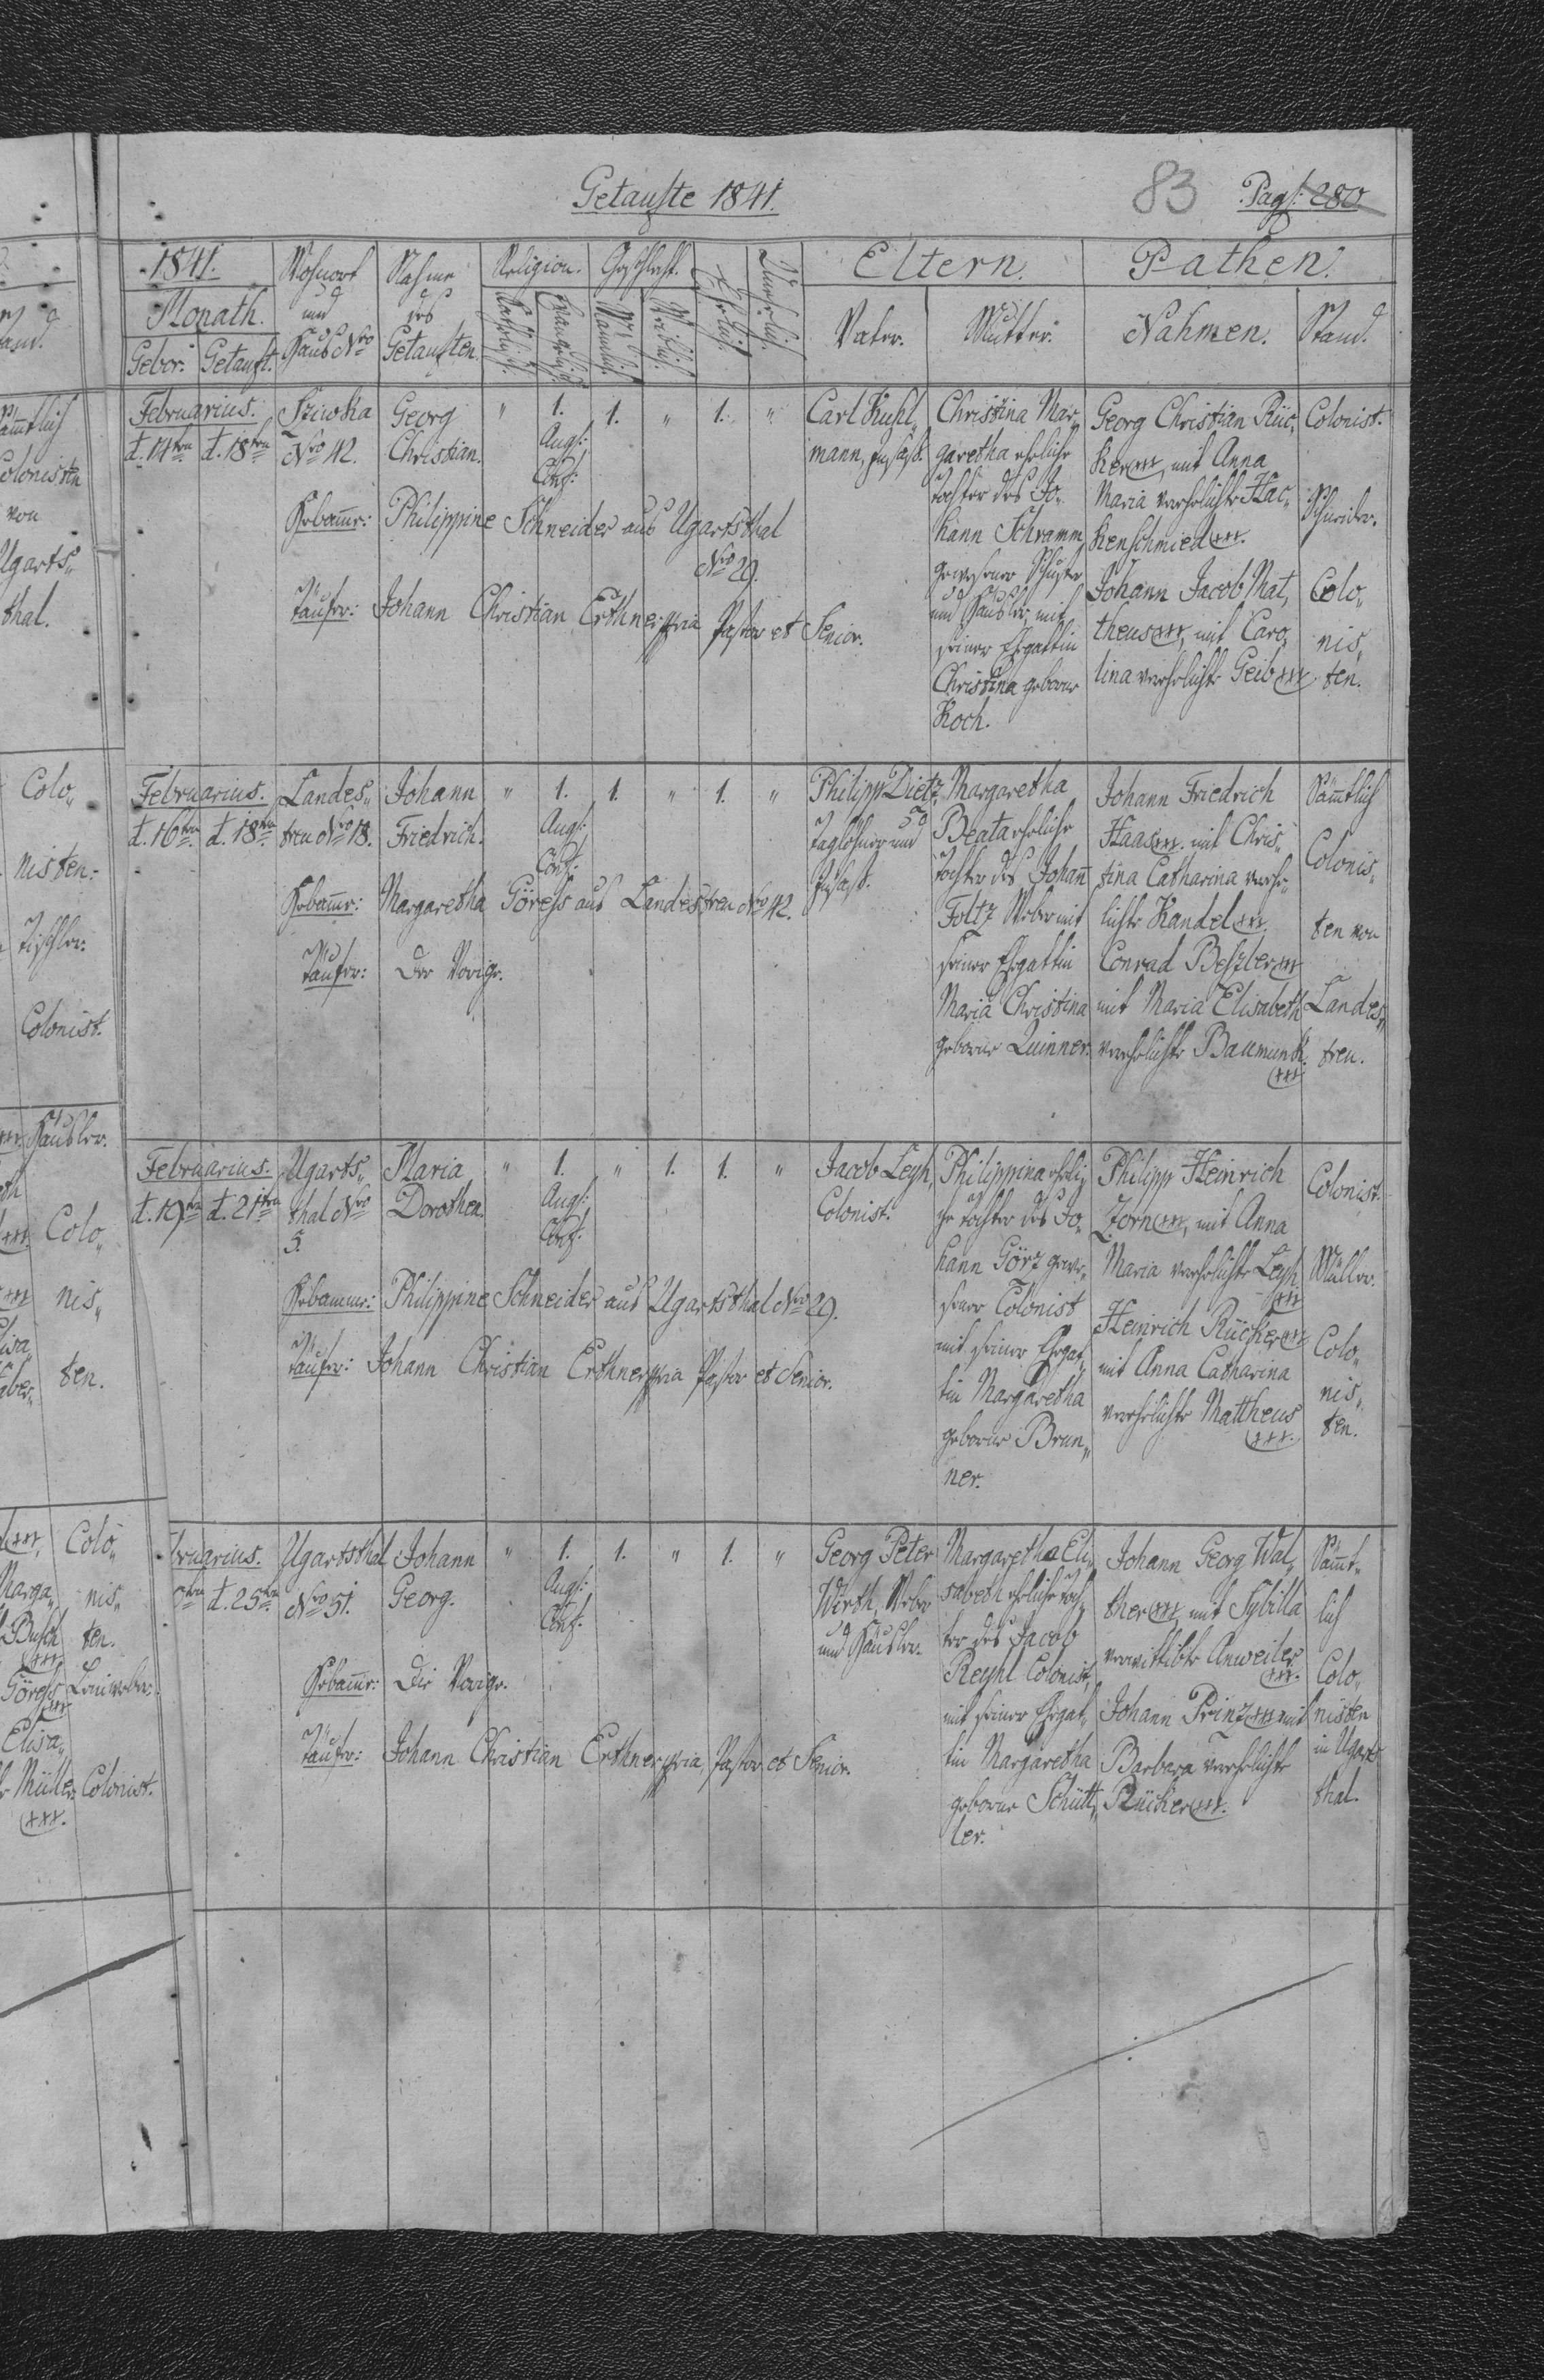 Getaufte 1841.
83 Pag: 280
1841.
Monath.
Gebor: Getauft.
Wohnort
und
Haus Nro
Nahme
des
Getauften.
Religion.
Katholisch.
Evangelisch.
Geschlecht.
Mänlich.
Weiblich.
Ehelich.
Unehelich.
Eltern.
Vater.
Mutter.
Pathen.
Nahmen.
Stand.
Februarius.
d. 14ten d. 18ten
Sziwka
Nro 42.
Georg
Christian.
" 1. 1. " 1. "
Augs:
Conf:
Carl Kuhl„
mann, Insaß.
Christina Mar„
garetha eheliche
Tochter des Jo„
hann Schramm
gewesener Schuster
und Häusler, mit
seiner Ehgattin
Christina geborne
Koch.
Georg Christian Rüc„
ker +++, mit Anna
Maria verehelichte Hac„
kenschmied +++.
Johann Jacob Mat„
theus +++, mit Caro„
lina verehelichte Geib +++
Colonist.
Schneider.
Colo„
nis„
ten.
Hebamme: Philippine Schneider aus Ugartsthal
Nro 29.
Täufer: Johann Christian Erthner mpria Pastor et Senior.
Februarius.
d. 16ten d. 18ten
Landes„
treu Nro 18.
Johann
Friedrich.
" 1. 1. " 1. "
Augs:
Conf:
Philipp Dietz,
Taglöhner und
Insaß.
Margaretha
Beata eheliche
Tochter des Johann
Foltz Weber mit
seiner Ehgattin
Maria Christina
geborne Quinner.
Johann Friedrich
Haas +++. mit Chris„
tina Catharina verehe„
lichte Kandel +++.
Conrad Beßler +++
mit Maria Elisabeth
verehelichte Baumunk.
+++
Sämtlich
Colonis„
ten von
Landes„
treu.
Hebamme: Margaretha Göress aus Landestreu Nro 42.
Täufer: Der Vorige.
Februarius.
d. 19ten d. 21ten
Ugarts„
thal Nro
5.
Maria
Dorothea.
" 1. " 1. 1. "
Augs:
Conf:
Jacob Leyh,
Colonist.
Philippina eheli„
che Tochter des Jo„
hann Görz gewe„
sener Colonist
mit seiner Ehgat„
tin Margaretha
geborne Brun„
ner.
Philipp Heinrich
Zorn +++, mit Anna
Maria verehelichte Leyh
+++
Heinrich Rücker +++
mit Anna Catharina
verehelichte Mattheus
+++.
Colonist.
Müller.
Colo„
nis„
ten.
Hebamme: Philippine Schneider aus Ugartsthal Nro 29.
Täufer: Johann Christian Erthner mpria Pastor et Senior.
bruarius.
d. 25ten
Ugartsthal
Nro 51.
Johann
Georg.
" 1. 1. " 1. "
Augs:
Conf:
Georg Peter
Wirth, Weber
und Häusler.
Margaretha Eli„
sabeth eheliche Toch„
ter des Jacob
Reyhl Colonist,
mit seiner Ehgat„
tin Margaretha
geborne Schütt„
ler.
Johann Georg Wal„
ther +++, mit Sybilla
verwittibte Anweiler
+++.
Johann Prinz +++ mit
Barbara verehelichte
Rücker +++.
Sämt„
lich
Colo„
nisten
in Ugarts
thal.
Hebamme: Die Vorige.
Täufer: Johann Christian Erthner mpria, Pastor et Senior.
Colonisten
von
Ugarts„
thal.
Colo„
nisten.
Tischler.
Colonist.
Häusler.
Colo„
nis„
ten.
Colo„
nis„
ten.
Marga„
Busch
Göress Leinweber.
Elisa„
Müller Colonist.
+++.